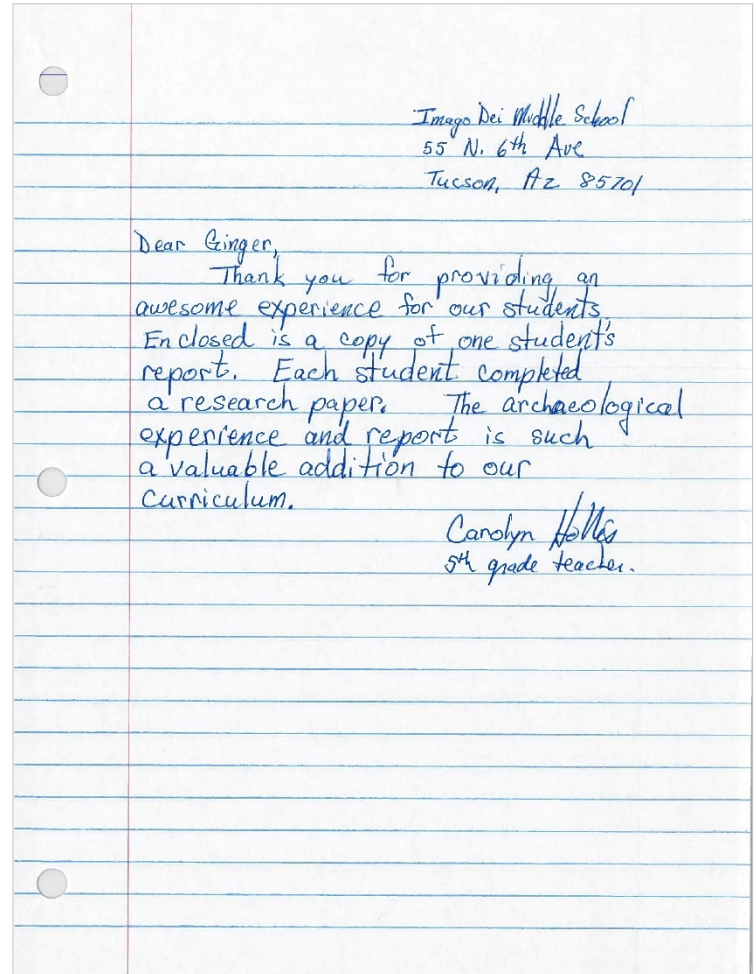 Imago Dei Middle School
55 N. 6th Ave
Tucson, Az 85701
Dear Ginger,
Thank you for providing an
awesome experience for our students.
Enclosed is a copy of one student's
report. Each student completed
a research paper. The archaeological
experience and report is such
a valuable addition to our
curriculum.
Carolyn Hollis
5th grade teacher.